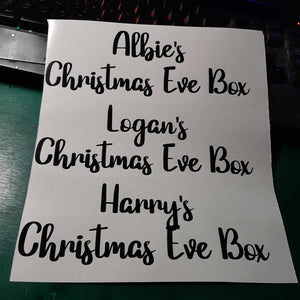 Albie's
Christmas Eve Box
Logan's
Christmas Eve Box
Harry's
Christmas Eve Box